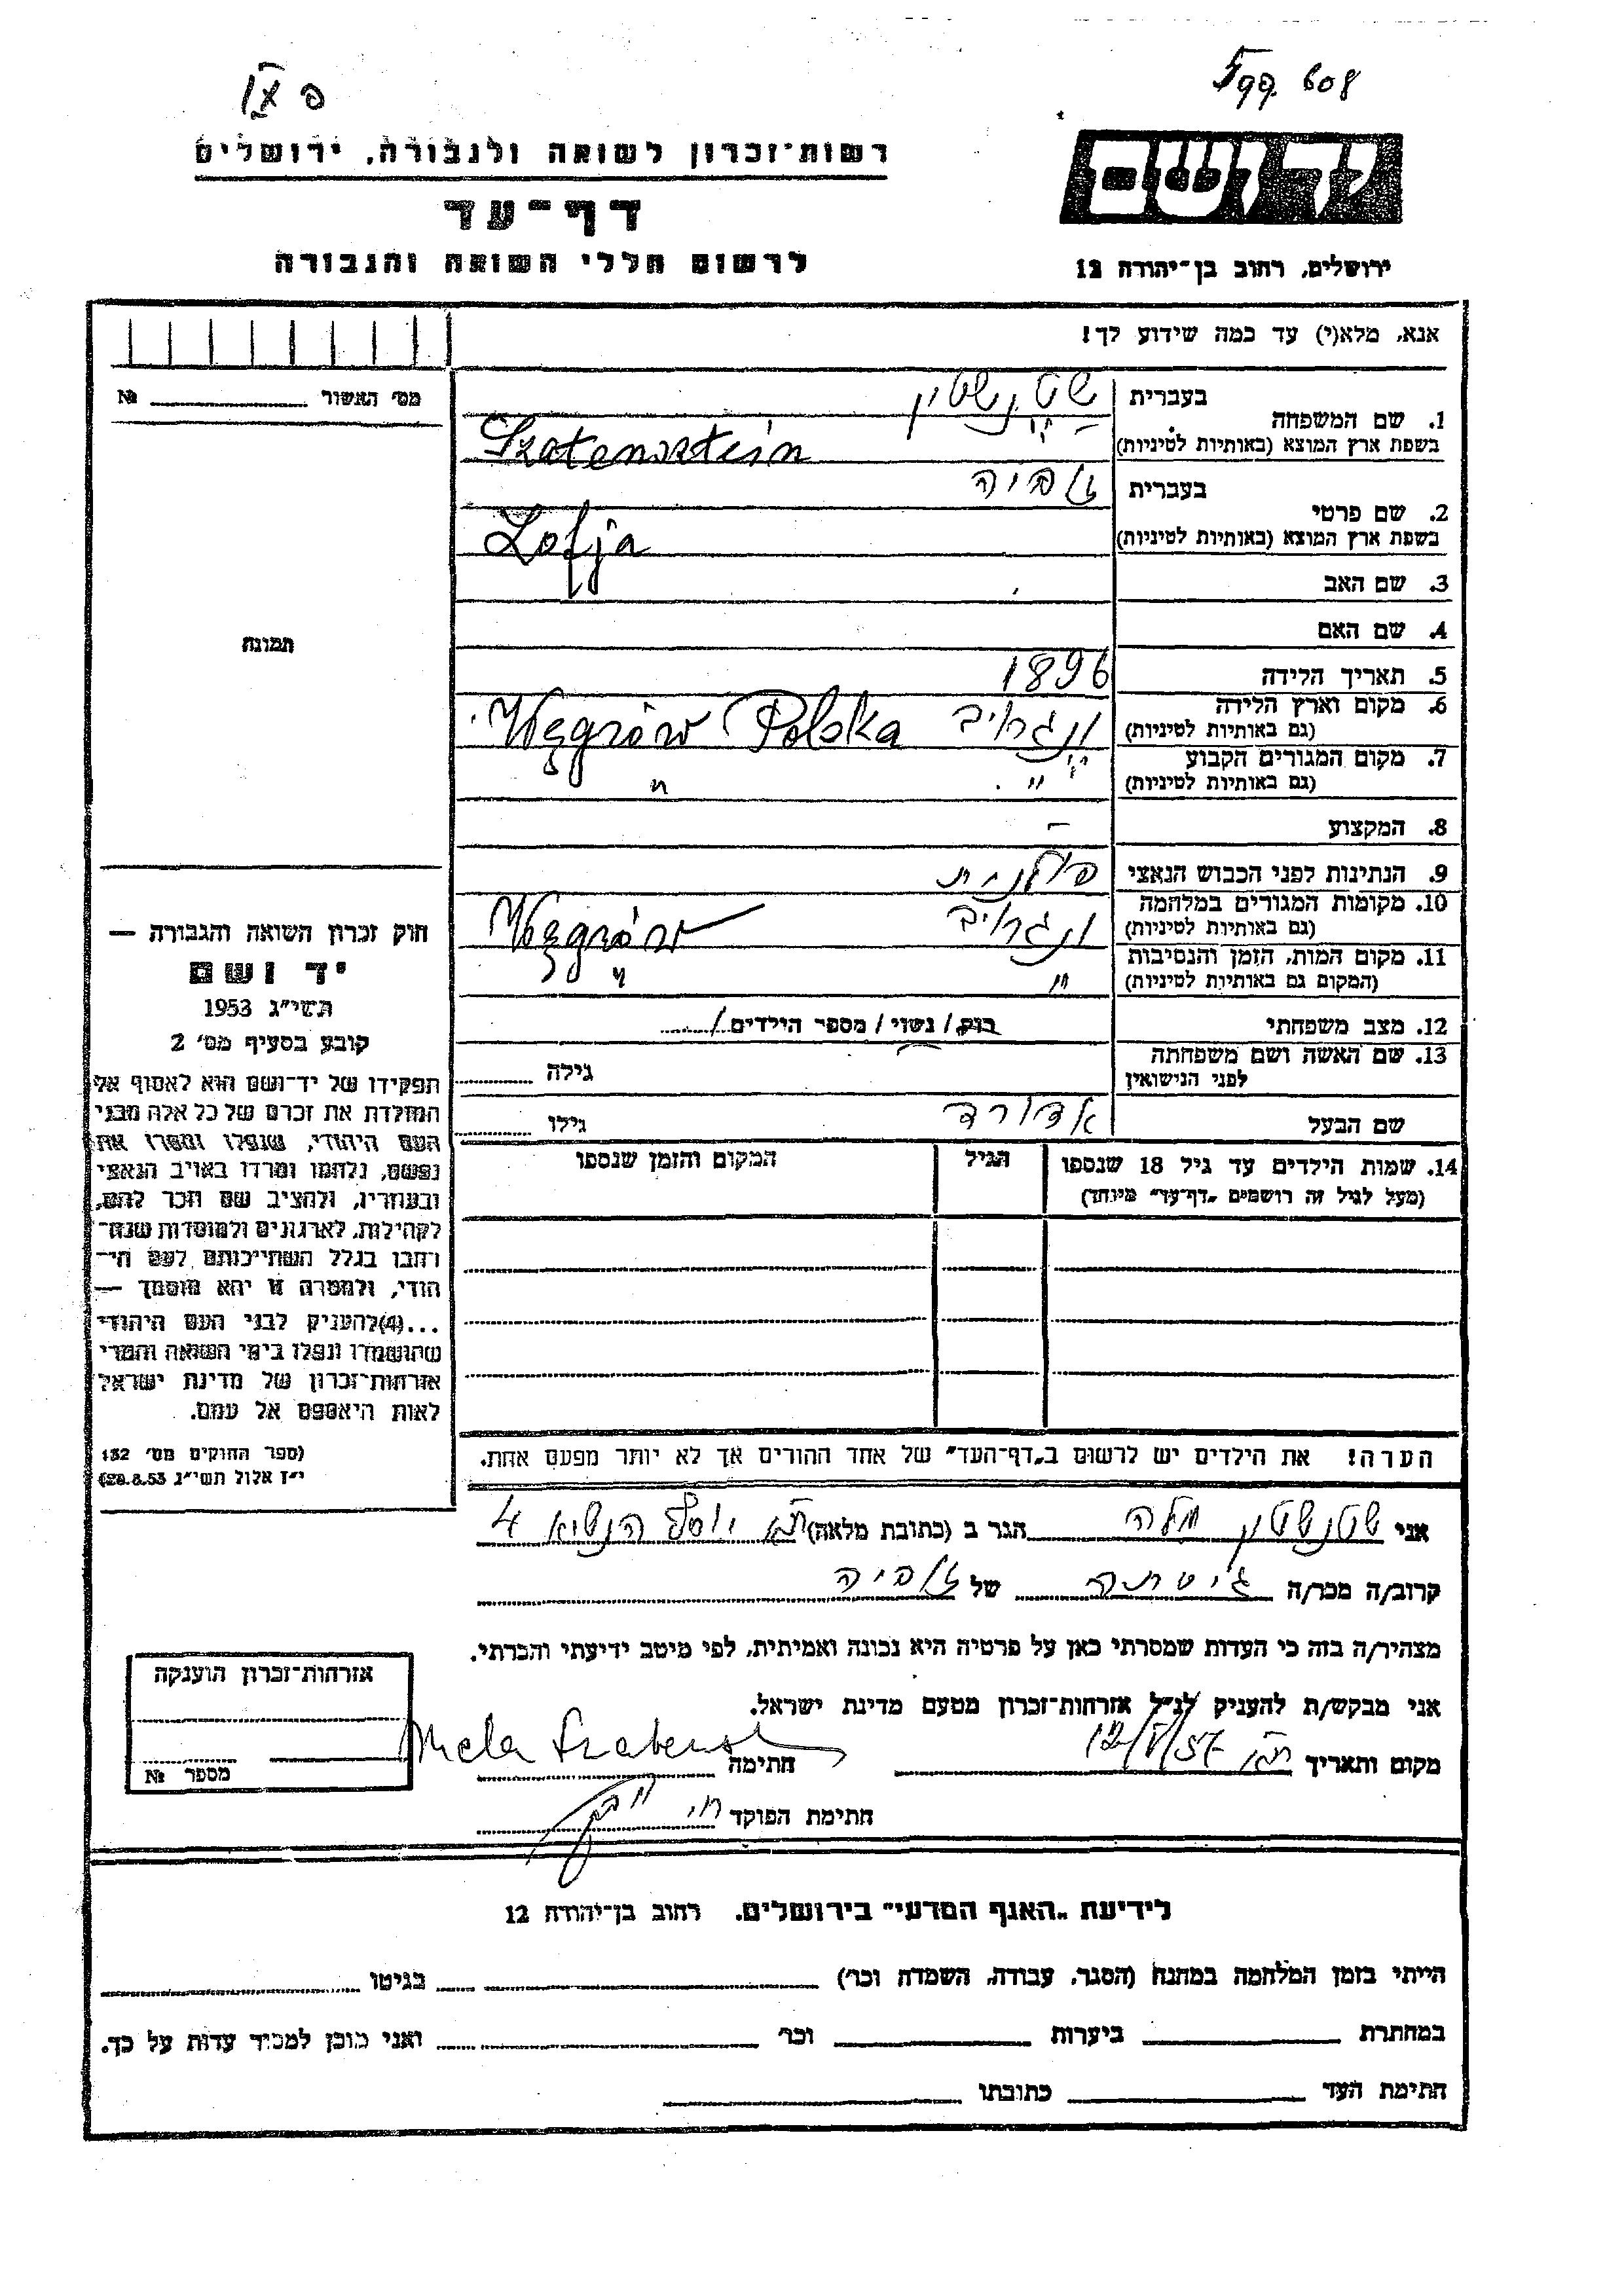 רשות־זכרון לשואה ולגבורה, ירושלים
דף־עד
לרשום חללי השואה והגבורה
יד ושם
ירושלים, רחוב בן־יהודה 12
אנא, מלא(י) עד כמה שידוע לך!
מס׳ האשור №
תמונה
1. שם המשפחה
בעברית
בשפת ארץ המוצא (באותיות לטיניות) Szatensztein
2. שם פרטי
בעברית זופיה
בשפת ארץ המוצא (באותיות לטיניות) Zofja
3. שם האב
4. שם האם
5. תאריך הלידה 1896
6. מקום וארץ הלידה
(גם באותיות לטיניות) ונגרוב Węgrów Polska
7. מקום המגורים הקבוע
(גם באותיות לטיניות) " "
8. המקצוע –
9. הנתינות לפני הכבוש הנאצי פולנית
10. מקומות המגורים במלחמה
(גם באותיות לטיניות) ונגרוב Węgrów
11. מקום המות, הזמן והנסיבות
(המקום גם באותיות לטיניות) " "
12. מצב משפחתי רווק / נשוי / מספר הילדים
13. שם האשה ושם משפחתה
לפני הנישואין
גילה
שם הבעל אדוארד גילו
14. שמות הילדים עד גיל 18 שנספו הגיל המקום והזמן שנספו
(מעל לגיל זה רושמים „דף־עד" מיוחד)
הערה! את הילדים יש לרשום ב„דף־העד" של אחד ההורים אך לא יותר מפעם אחת.
חוק זכרון השואה והגבורה —
יד ושם
תשי״ג 1953
קובע בסעיף מס׳ 2
תפקידו של יד־ושם הוא לאסוף אל
המולדת את זכרם של כל אלה מבני
העם היהודי, שנפלו ומסרו את
נפשם, נלחמו ומרדו באויב הנאצי
ובעוזריו, ולהציב שם וזכר להם,
לקהילות, לארגונים ולמוסדות שנח־
רבו בגלל השתייכותם לעם הי־
הודי, ולמטרה זו יהא מוסמך —
...(4)להעניק לבני העם היהודי
שהושמדו ונפלו בימי השואה והמרי
אזרחות־זכרון של מדינת ישראל
לאות היאספם אל עמם.
(ספר החוקים מס׳ 132
י״ז אלול תשי״ג 28.8.53)
אני שטנשטין מלה הגר ב (כתובת מלאה) ת״א יוסף הנשיא 4
קרוב/ה מכר/ה גיסתה של זופיה
מצהיר/ה בזה כי העדות שמסרתי כאן על פרטיה היא נכונה ואמיתית, לפי מיטב ידיעתי והכרתי.
אני מבקש/ת להעניק לנ״ל אזרחות־זכרון מטעם מדינת ישראל.
מקום ותאריך ת״א חתימה
חתימת הפוקד
אזרחות־זכרון הוענקה
מספר №
לידיעת „האגף המדעי" בירושלים. רחוב בן־יהודה 12
הייתי בזמן המלחמה במחנה (הסגר, עבודה, השמדה וכר׳) בגיטו
במחתרת ביערות וכר׳ ואני מוכן למסיר עדות על כך.
חתימת העד כתובתו